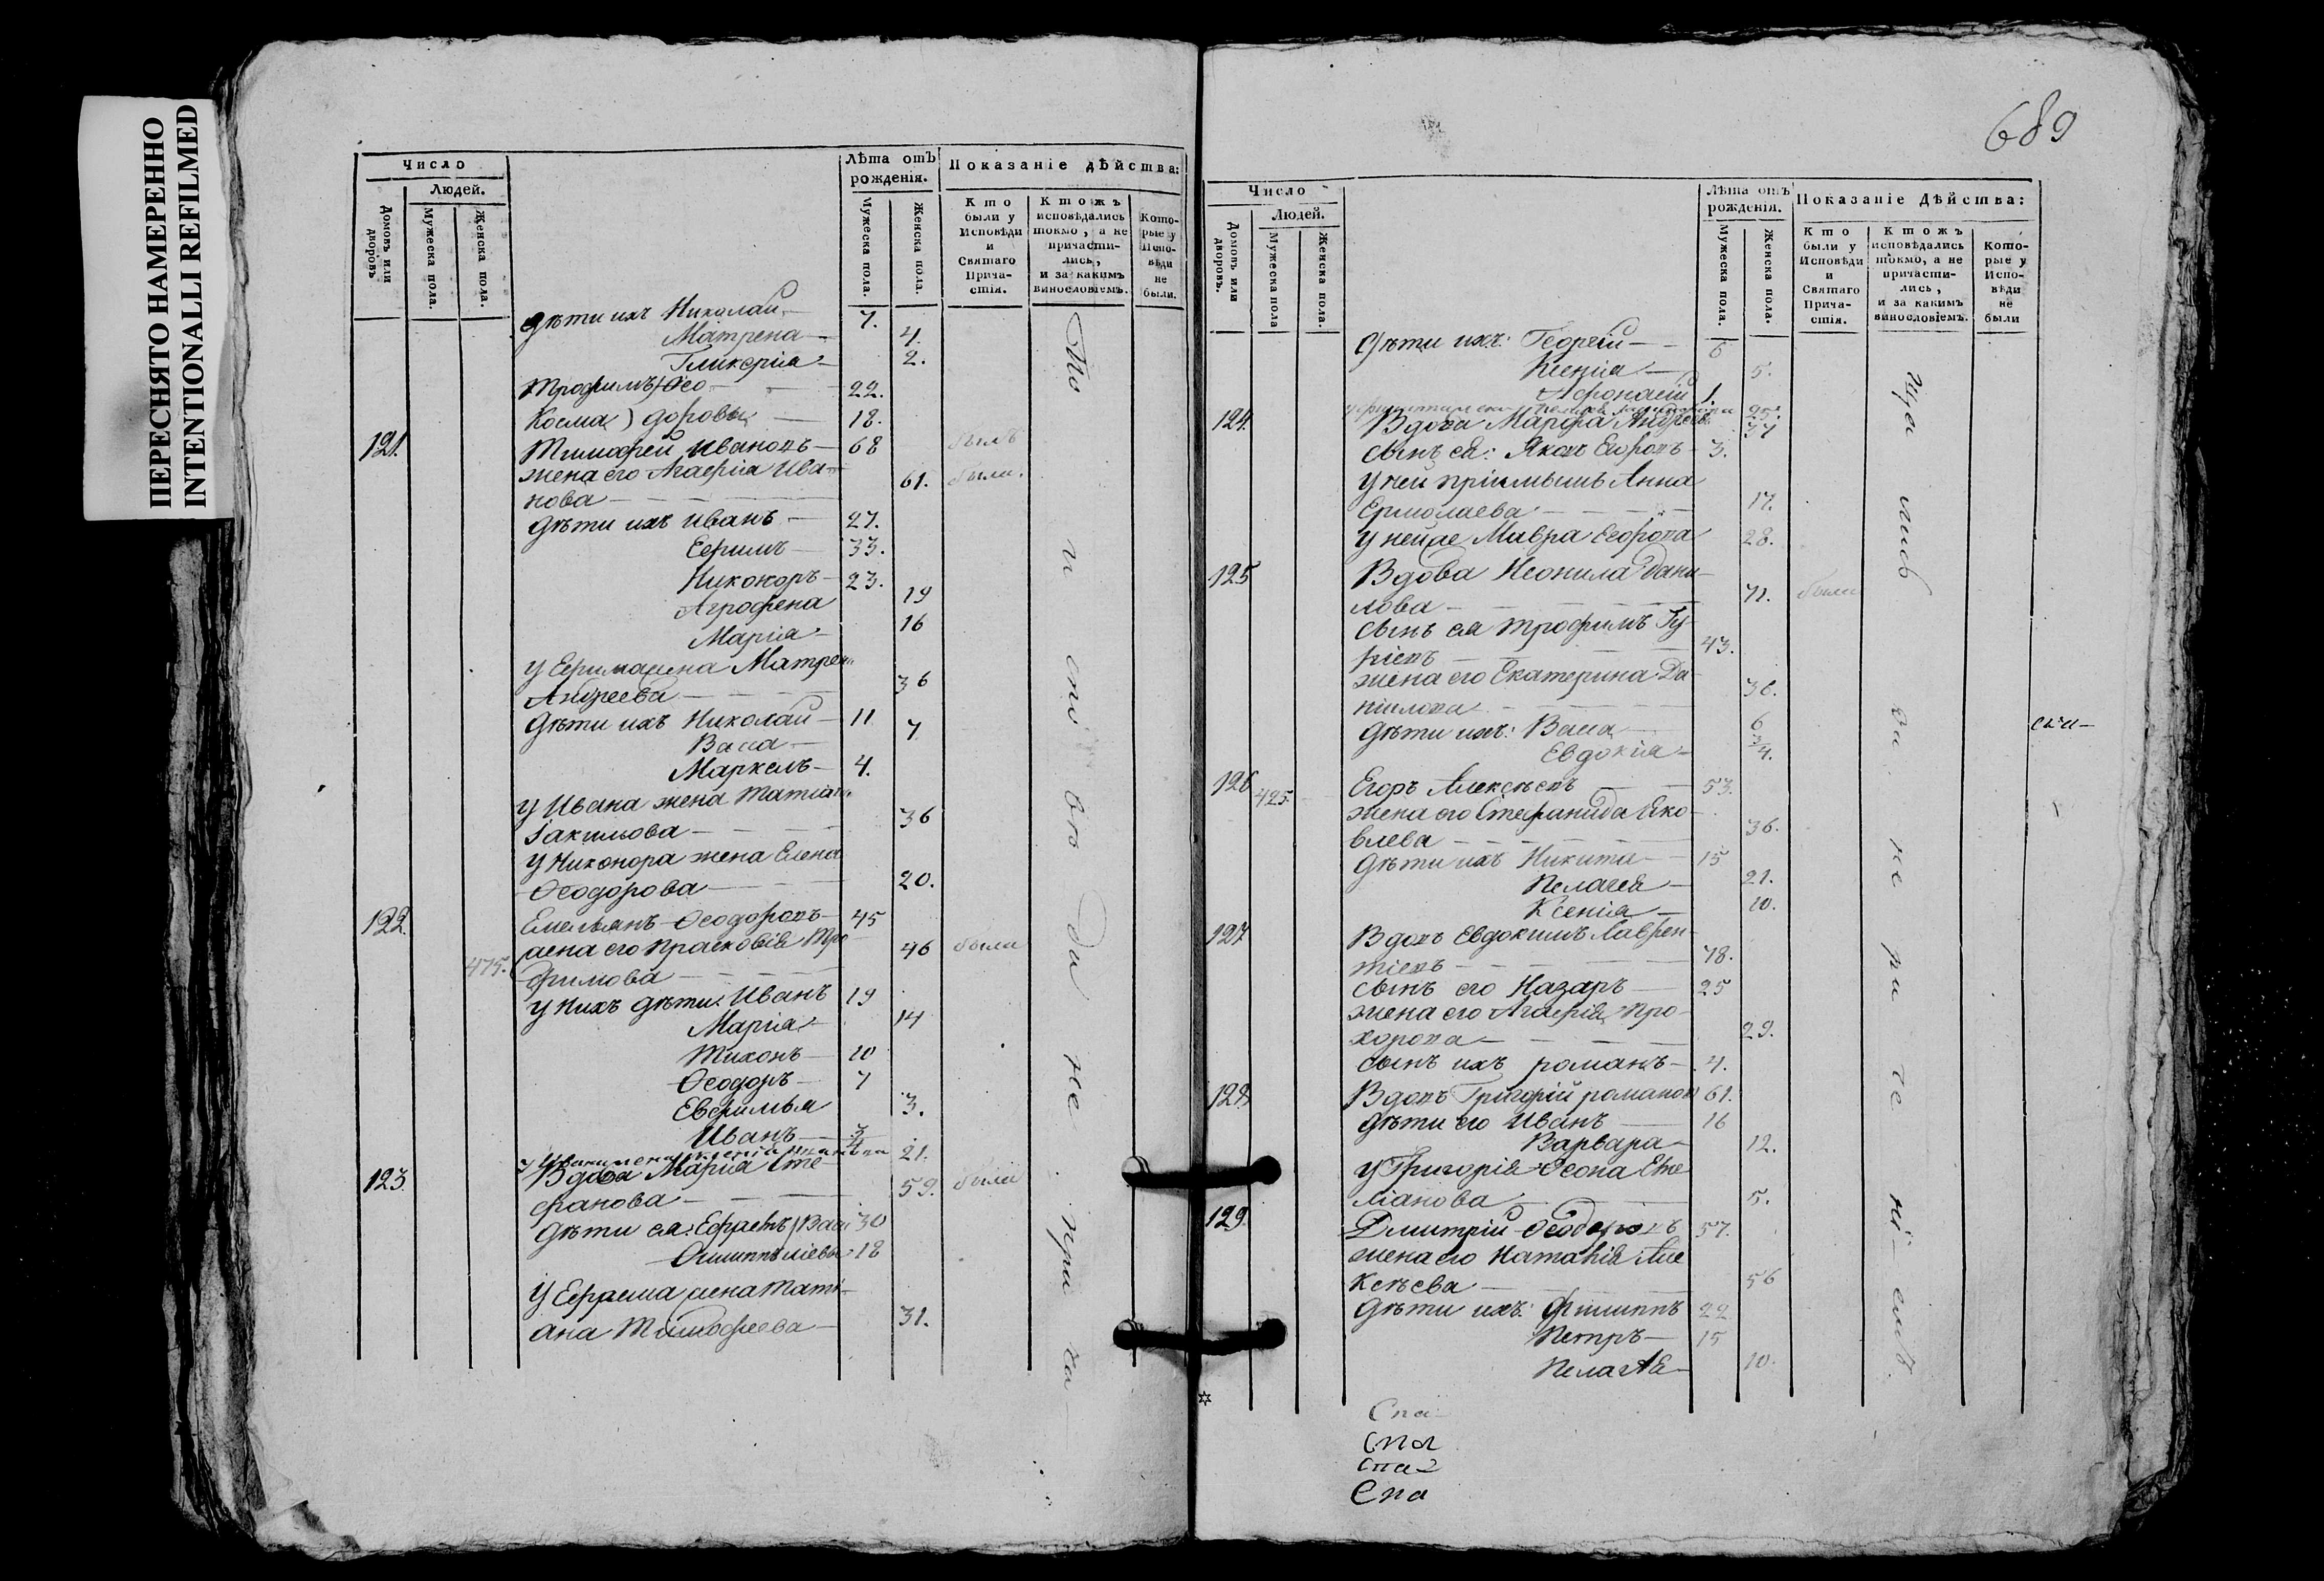 ПЕРЕСНЯТО НАМЕРЕННО
INTENTIONALLI REFILMED
Число
Людей.
Домовъ или дворовъ
Мужеска пола.
Женска пола.
Лѣта отъ рожденія.
Мужеска пола.
Женска пола.
Показаніе дѣйства:
Кто были у Исповѣди и Святаго Причастія.
Ктожъ исповѣдались токмо, а не причастились, и за какимъ винословіемъ.
Которые у Исповѣди не были.
Дѣти ихъ Николай 7.
Матрена 4.
Гликерія 2.
Трофимъ) Ѳео 22.
Косма) доровы 18.
121. Тимофей Ивановъ 68 былъ
жена его Агафія Ива
нова 61. была.
Дѣти ихъ Иванъ 27.
Ефимъ 33.
Никоноръ 23.
Агрофена 19
Марія 16
у Ефима жена Матрена
Андреева 36
Дѣти ихъ Николай 11
Васса 7
Маркелъ 4.
у Ивана жена Татіана
Іакимова 36
у Никонора жена Елена
Ѳеодорова 20.
122. Емельянъ Ѳеодоровъ 45
жена его Прасковія Тро 46 была
475. фимова
у нихъ дѣти: Иванъ 19
Марія 14
Тихонъ 10
Ѳеодоръ 7
Евфимья 3.
Иванъ 3/4
21.
123. Вдова Марія Сте
фанова 59. была
Дѣти ея: Ефремъ) Васи 30
Филиппъ ліевы 18
У Ефрема жена Тати
ана Тимофеева 31.
То и спо во ди не при ча
689
Число
Людей.
Домовъ или дворовъ.
Мужеска пола
Женска пола.
Лѣта отъ рожденія.
Мужеска пола.
Женска пола.
Показаніе Дѣйства:
Кто были у Исповѣди и Святаго Причастія.
Ктожъ исповѣдались токмо, а не причастились, и за какимъ винословіемъ.
Которые у Исповѣди не были
Дѣти ихъ: Георгій 6
Ксенія 5.
Афонасій 1.
25.
124. Вдова Марфа Андреева 37
сынъ ея: Яковъ Егоровъ 3.
у ней пріимышъ Анна
Ермолаева 17.
у нейже Мавра Егорова 28.
125 Вдова Неонила Дани
лова 71. была
сынъ ея Трофимъ Гу
ріевъ 43.
жена его Екатерина Да
ніилова 36.
Дѣти ихъ: Васса 6
Евдокія 3/4.
126 Егоръ Алексѣевъ 53.
425. жена его Стефанида Яко
влева 36.
Дѣти ихъ Никита 15
Пелагея 21.
Ксенія 10.
127 Вдовъ Евдокимъ Лаврен
тіевъ 78.
сынъ его Назаръ 25
жена его Агафія Про
хорова 29.
сынъ ихъ романъ 4.
128 Вдовъ Григорій романов 61.
Дѣти его Иванъ 16
Варвара 12.
у Григорія Ѳеона Еме
ліанова 5.
129. Дмитрій Ѳеодоровъ 57.
жена его Наталія Але
ксѣева 56
Дѣти ихъ: Филиппъ 22
Петръ 15
Пелагея 10.
Спа
Спа
Спа
Спа